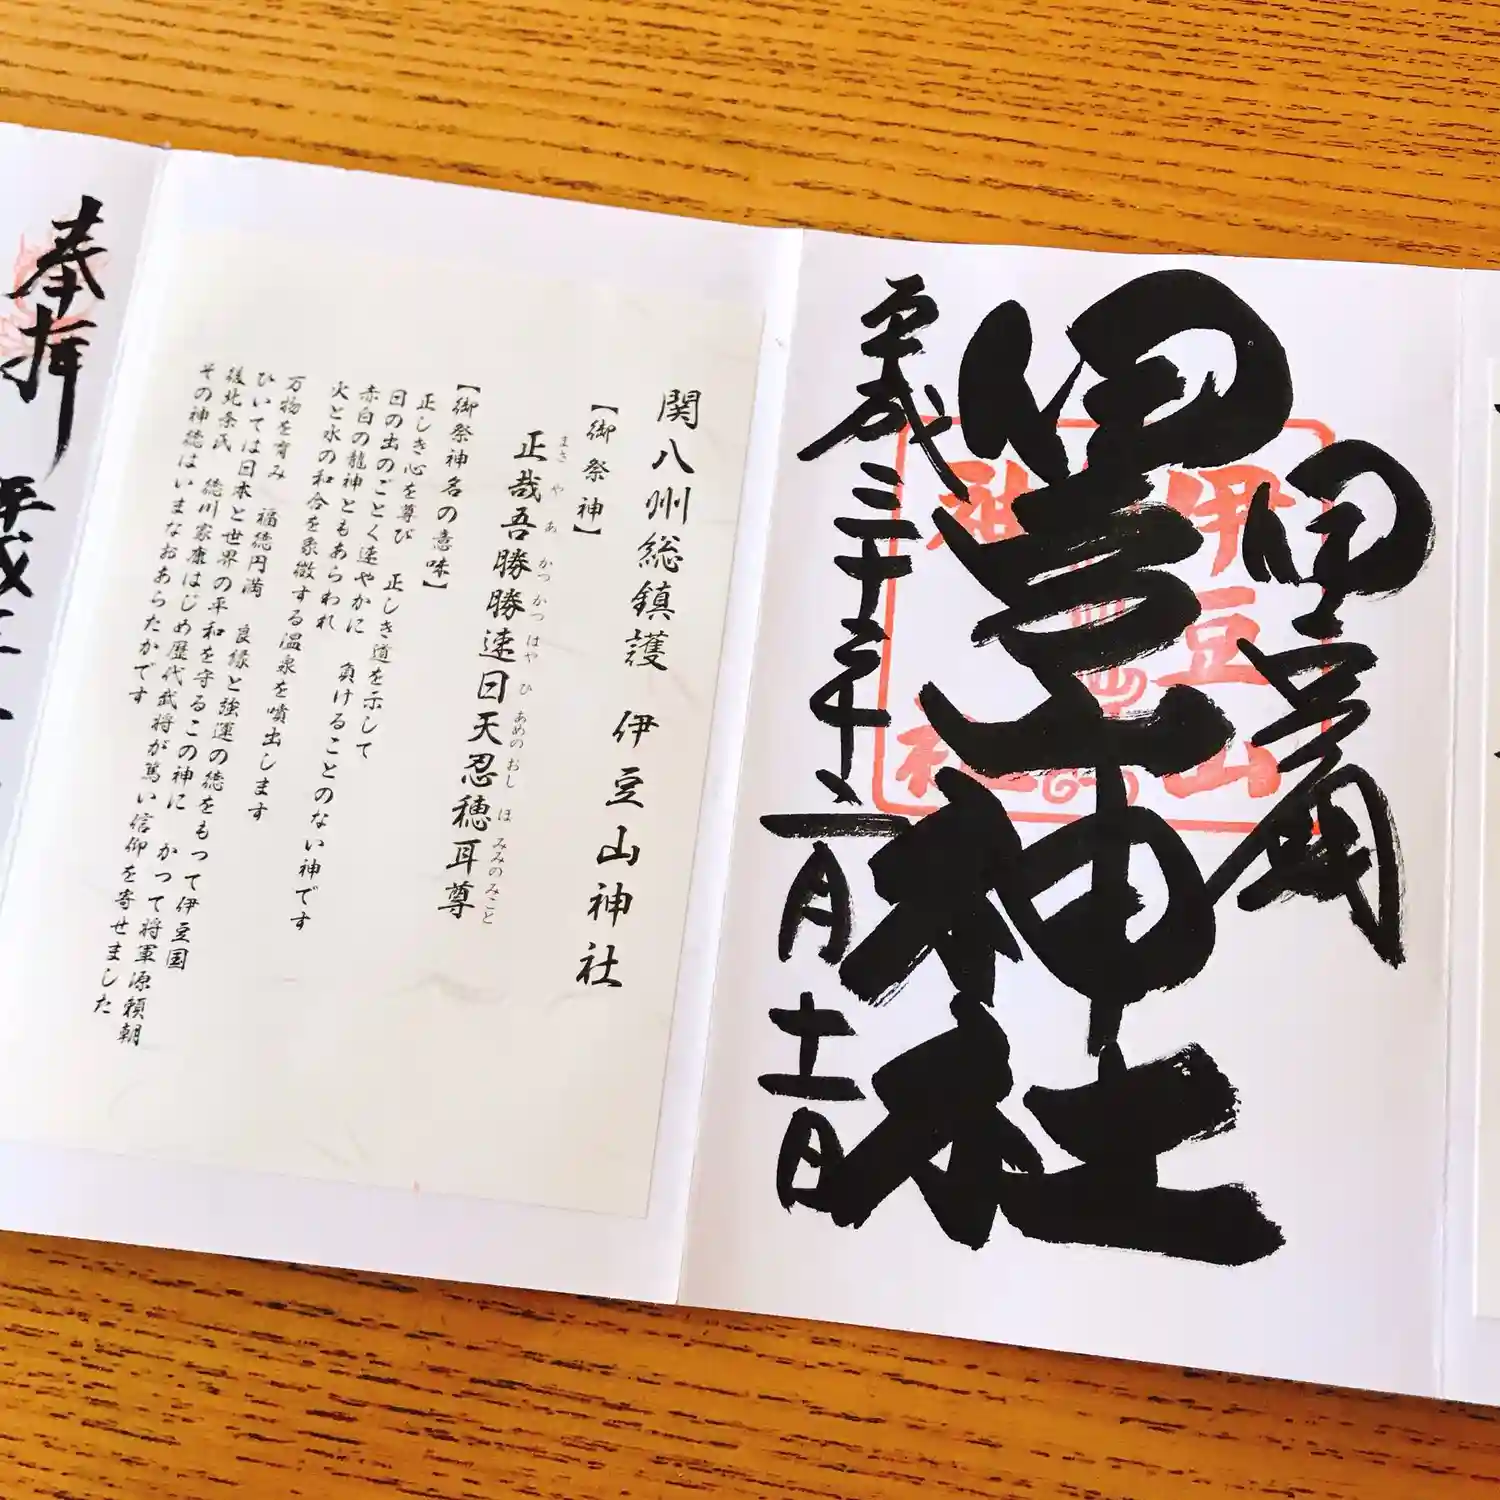 伊豆
伊豆山神社
伊豆山
神社
平成三十年一月十一日
関八州総鎮護　伊豆山神社
【御祭神】
正哉吾勝勝速日天忍穂耳尊
まさ や あ かつ かつ はや ひ あめのおし ほ みみのみこと
【御祭神名の意味】
正しき心を尊び　正しき道を示して
日の出のごとく速やかに　負けることのない神です
赤白の龍神ともあらわれ
火と水の和合を象徴する温泉を噴出します
万物を育み　福徳円満　良縁と強運の徳をもって伊豆国
ひいては日本と世界の平和を守るこの神に　かつて将軍源頼朝
後北条氏　徳川家康はじめ歴代武将が篤い信仰を寄せました
その神徳はいまなおあらたかです
奉拝
平成三